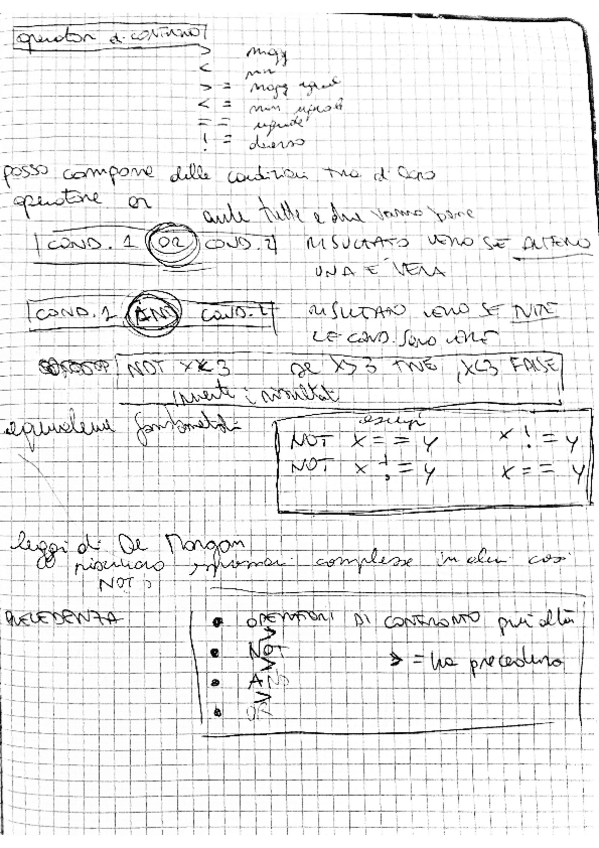 operatori di CONFRONTO
> magg
< min
> = magg uguale
< = min uguale
= = uguale
! = diverso
posso comporre delle condizioni tra di loro
operatore or
anche tutte e due vanno bene
COND. 1 OR COND. 2 RISULTATO VERO SE ALMENO
UNA E' VERA
COND. 1 AND COND. 2 RISULTATO VERO SE TUTTE
LE COND. SONO VERE
NOT X<3 SE X>3 TRUE, X<3 FALSE
inverte i risultati
equivalenze fondamentali
esempi
NOT X == Y X != Y
NOT X != Y X == Y
leggi di De Morgan
complesse in alcuni casi
NOT
PRECEDENZA
• OPERATORI DI CONFRONTO più alta
• NOT
> = ha precedenza
• AND
• OR